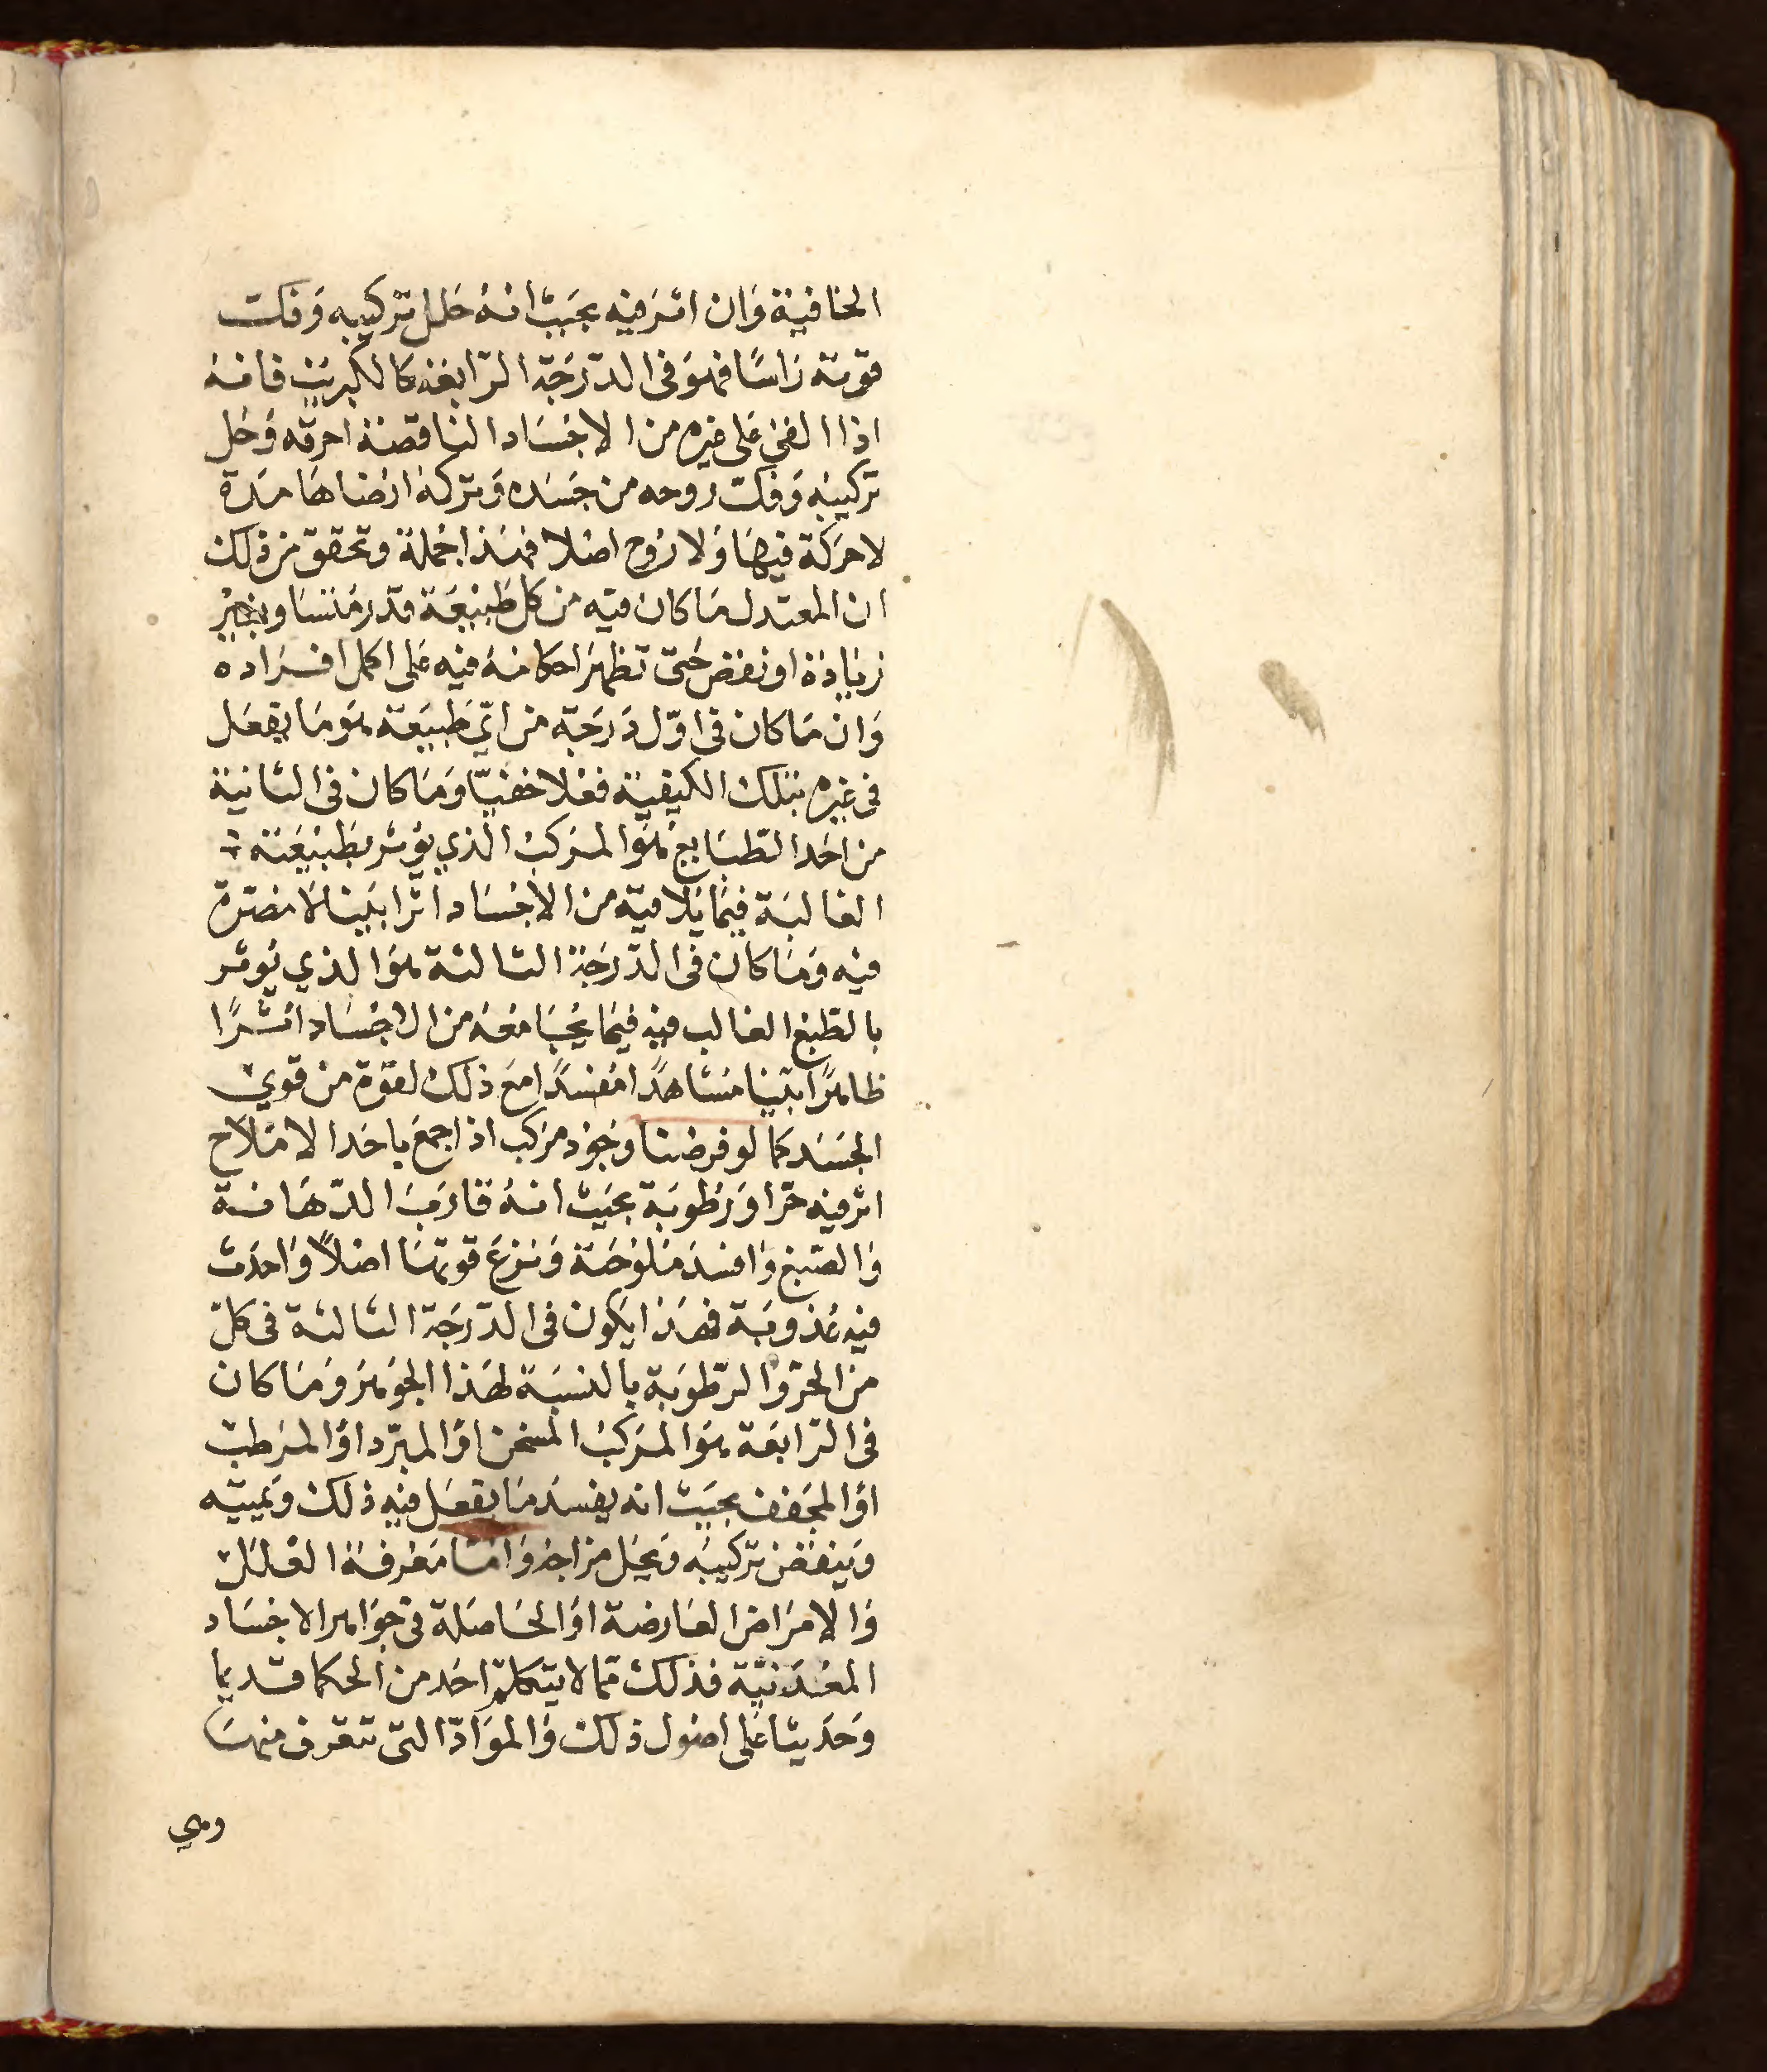 الخافية وان اثر فيه بحيث انه حلل تركيبه وفكت
قوته راسا فهو في الدرجة الرابعة كالكبريت فانه
اذا القي على غيره من الاجساد الناقصة احرقه وحل
تركيبه وفكت روحه من جسده وتركه ارضا هامدة
لا حركة فيها ولا روح اصلا فهذا جملة وتحقق من ذلك
ان المعتدل ما كان فيه من كل طبيعة قدر متساو بغير
زيادة او نقص حتى تظهر احكامه فيه على اكمل افراده
وان ما كان في اول درجة من اي طبيعة هو ما يفعل
في غيره بتلك الكيفية فعلا خفيا وما كان في الثانية
من احد الطبايع هو المركب الذي يوثر بطبيعته
الغالبة فيما يلاقيه من الاجساد اثرا بينا لا مضرة
فيه وما كان في الدرجة الثالثة هو الذي يوثر
بالطبع الغالب فيه فيما يجامعه من الاجساد اثرا
ظاهرا بينا مشاهدا مفسدا مع ذلك لقوة من قوي
الجسد كما لو فرضنا وجود مركب اذا جمع باحد الاملاح
اثر فيه حرا ورطوبة بحيث انه قارب الدهانة
والصبغ وافسد ملوحته ونزع قوتها اصلا واحدث
فيه عذوبة فهذا يكون في الدرجة الثالثة في كل
من الحر والرطوبة بالنسبة لهذا الجوهر وما كان
في الرابعة هو المركب المسخن او المبرد او المرطب
او المجفف بحيث انه يفسد ما يفعل فيه ذلك ويميته
وينقض تركيبه ويحيل مزاجه واما معرفة العلل
والامراض العارضة او الحاصلة في جواهر الاجساد
المعدنية فذلك مما لا يتكلم احد من الحكما قديما
وحديثا على اصول ذلك والمواد التي تتعرف منها
وهي